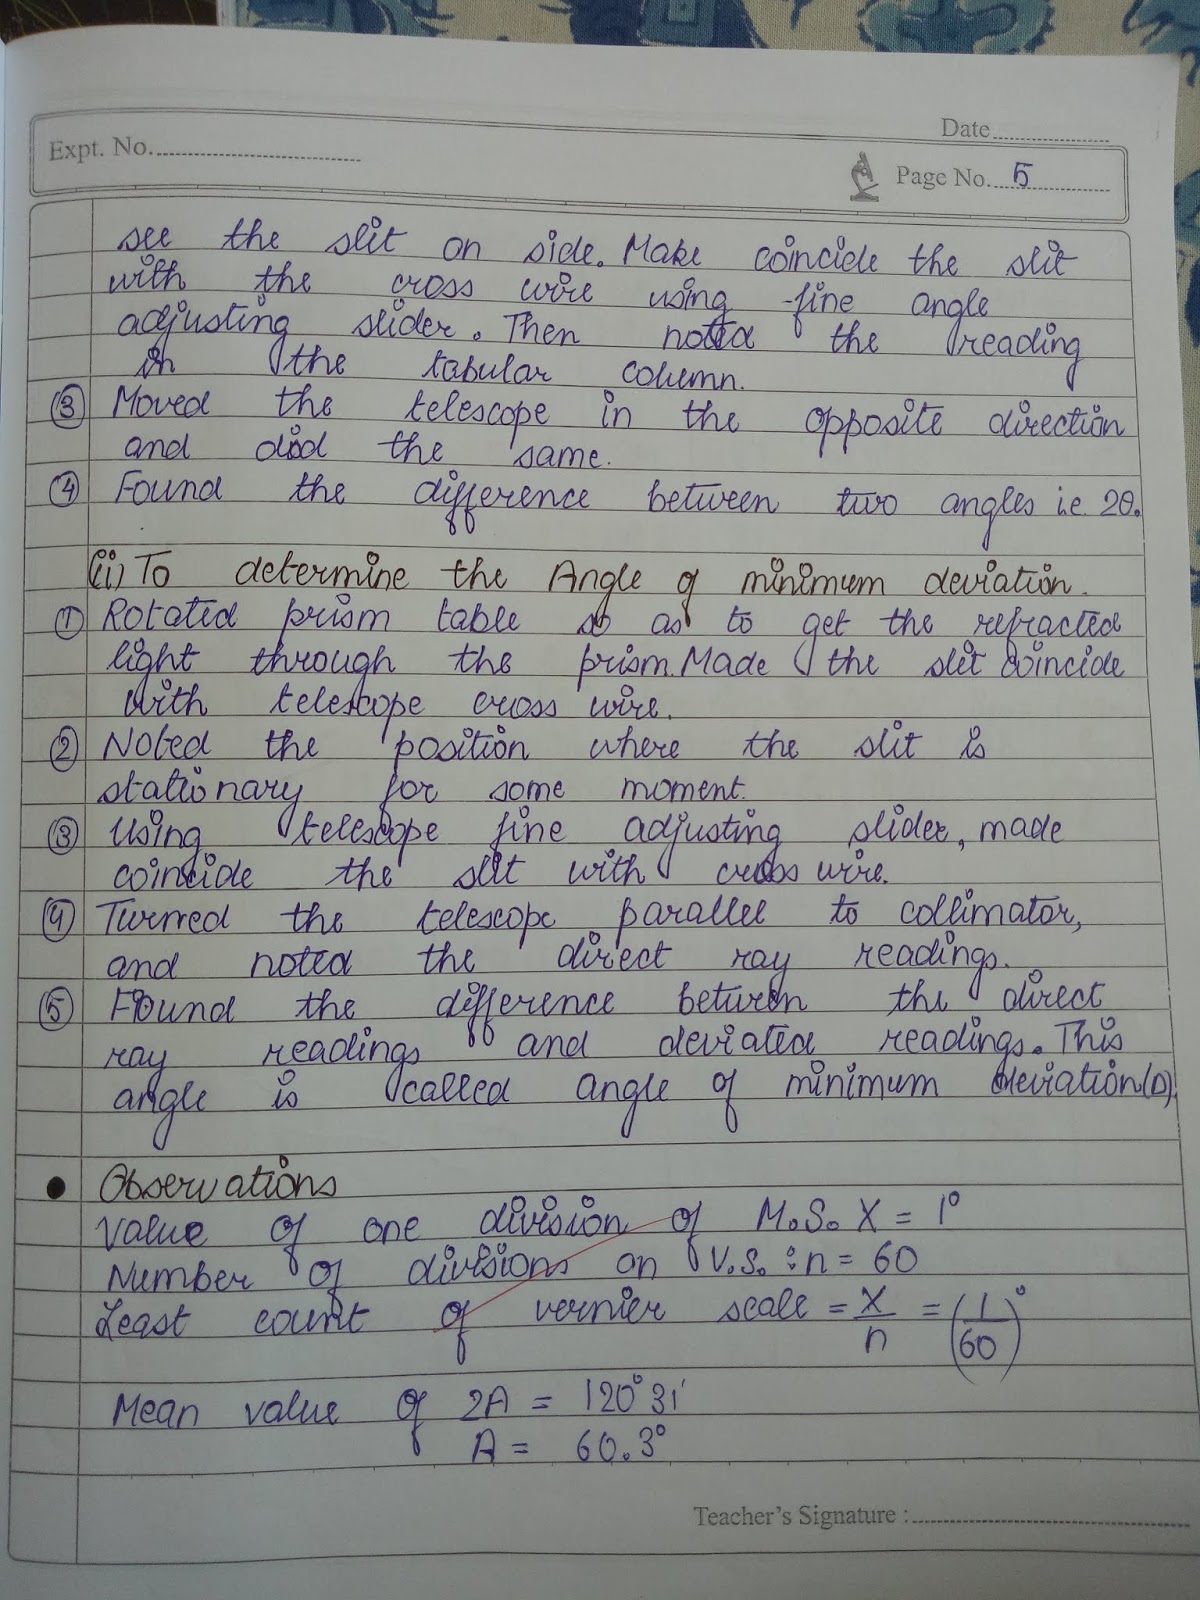 Date
Expt. No.
Page No. 5
see the slit on side. Make coincide the slit
with the cross wire using fine angle
adjusting slider. Then noted the reading
in the tabular column.
③ Moved the telescope in the opposite direction
and did the same.
④ Found the difference between two angles i.e. 2θ.
(ii) To determine the Angle of minimum deviation.
① Rotated prism table so as to get the refracted
light through the prism. Made the slit coincide
with telescope cross wire.
② Noted the position where the slit is
stationary for some moment.
③ Using telescope fine adjusting slider, made
coincide the slit with cross wire.
④ Turned the telescope parallel to collimator,
and noted the direct ray readings.
⑤ Found the difference between the direct
ray readings and deviated readings. This
angle is called angle of minimum deviation (D).
● Observations
Value of one division of M.S. X = 1°
Number of divisions on V.S. : n = 60
Least count of vernier scale = X/n = (1/60)°
Mean value of 2A = 120°31'
A = 60.3°
Teacher's Signature :